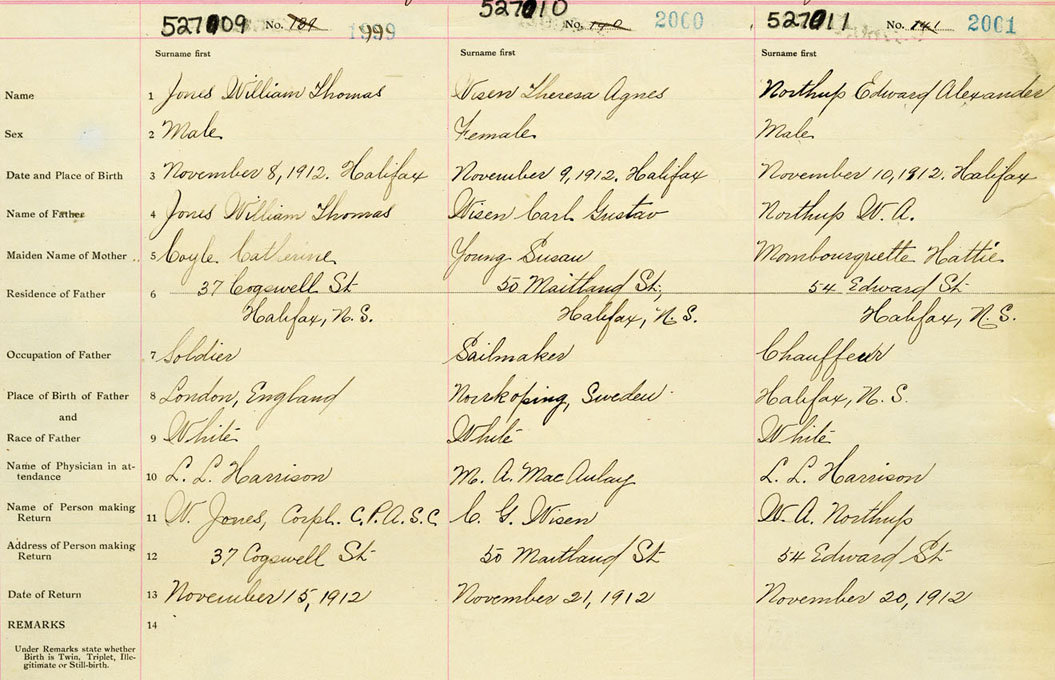 527009 No. 139 1999
527010 No. 140 2000
527011 No. 141 2001
Surname first Surname first Surname first
Name 1 Jones William Thomas Wisen Theresa Agnes Northup Edward Alexander
Sex 2 Male Female Male
Date and Place of Birth 3 November 8, 1912. Halifax November 9, 1912. Halifax November 10, 1912. Halifax
Name of Father 4 Jones William Thomas Wisen Carl Gustav Northup W. A.
Maiden Name of Mother 5 Coyle Catherine Young Susan Mombourquette Hattie
Residence of Father 6 37 Cogswell St 50 Maitland St, 54 Edward St
Halifax, N. S. Halifax, N. S. Halifax, N. S.
Occupation of Father 7 Soldier Sailmaker Chauffeur
Place of Birth of Father 8 London, England Norrkoping, Sweden Halifax, N. S.
and
Race of Father 9 White White White
Name of Physician in at-
tendance 10 L. L. Harrison M. A. MacAulay L. L. Harrison
Name of Person making
Return 11 W. Jones, Corpl. C.P.A.S.C C. G. Wisen W. A. Northup
Address of Person making
Return 12 37 Cogswell St 50 Maitland St 54 Edward St
Date of Return 13 November 15, 1912 November 21, 1912 November 20, 1912
REMARKS 14
Under Remarks state whether
Birth is Twin, Triplet, Ille-
gitimate or Still-birth.